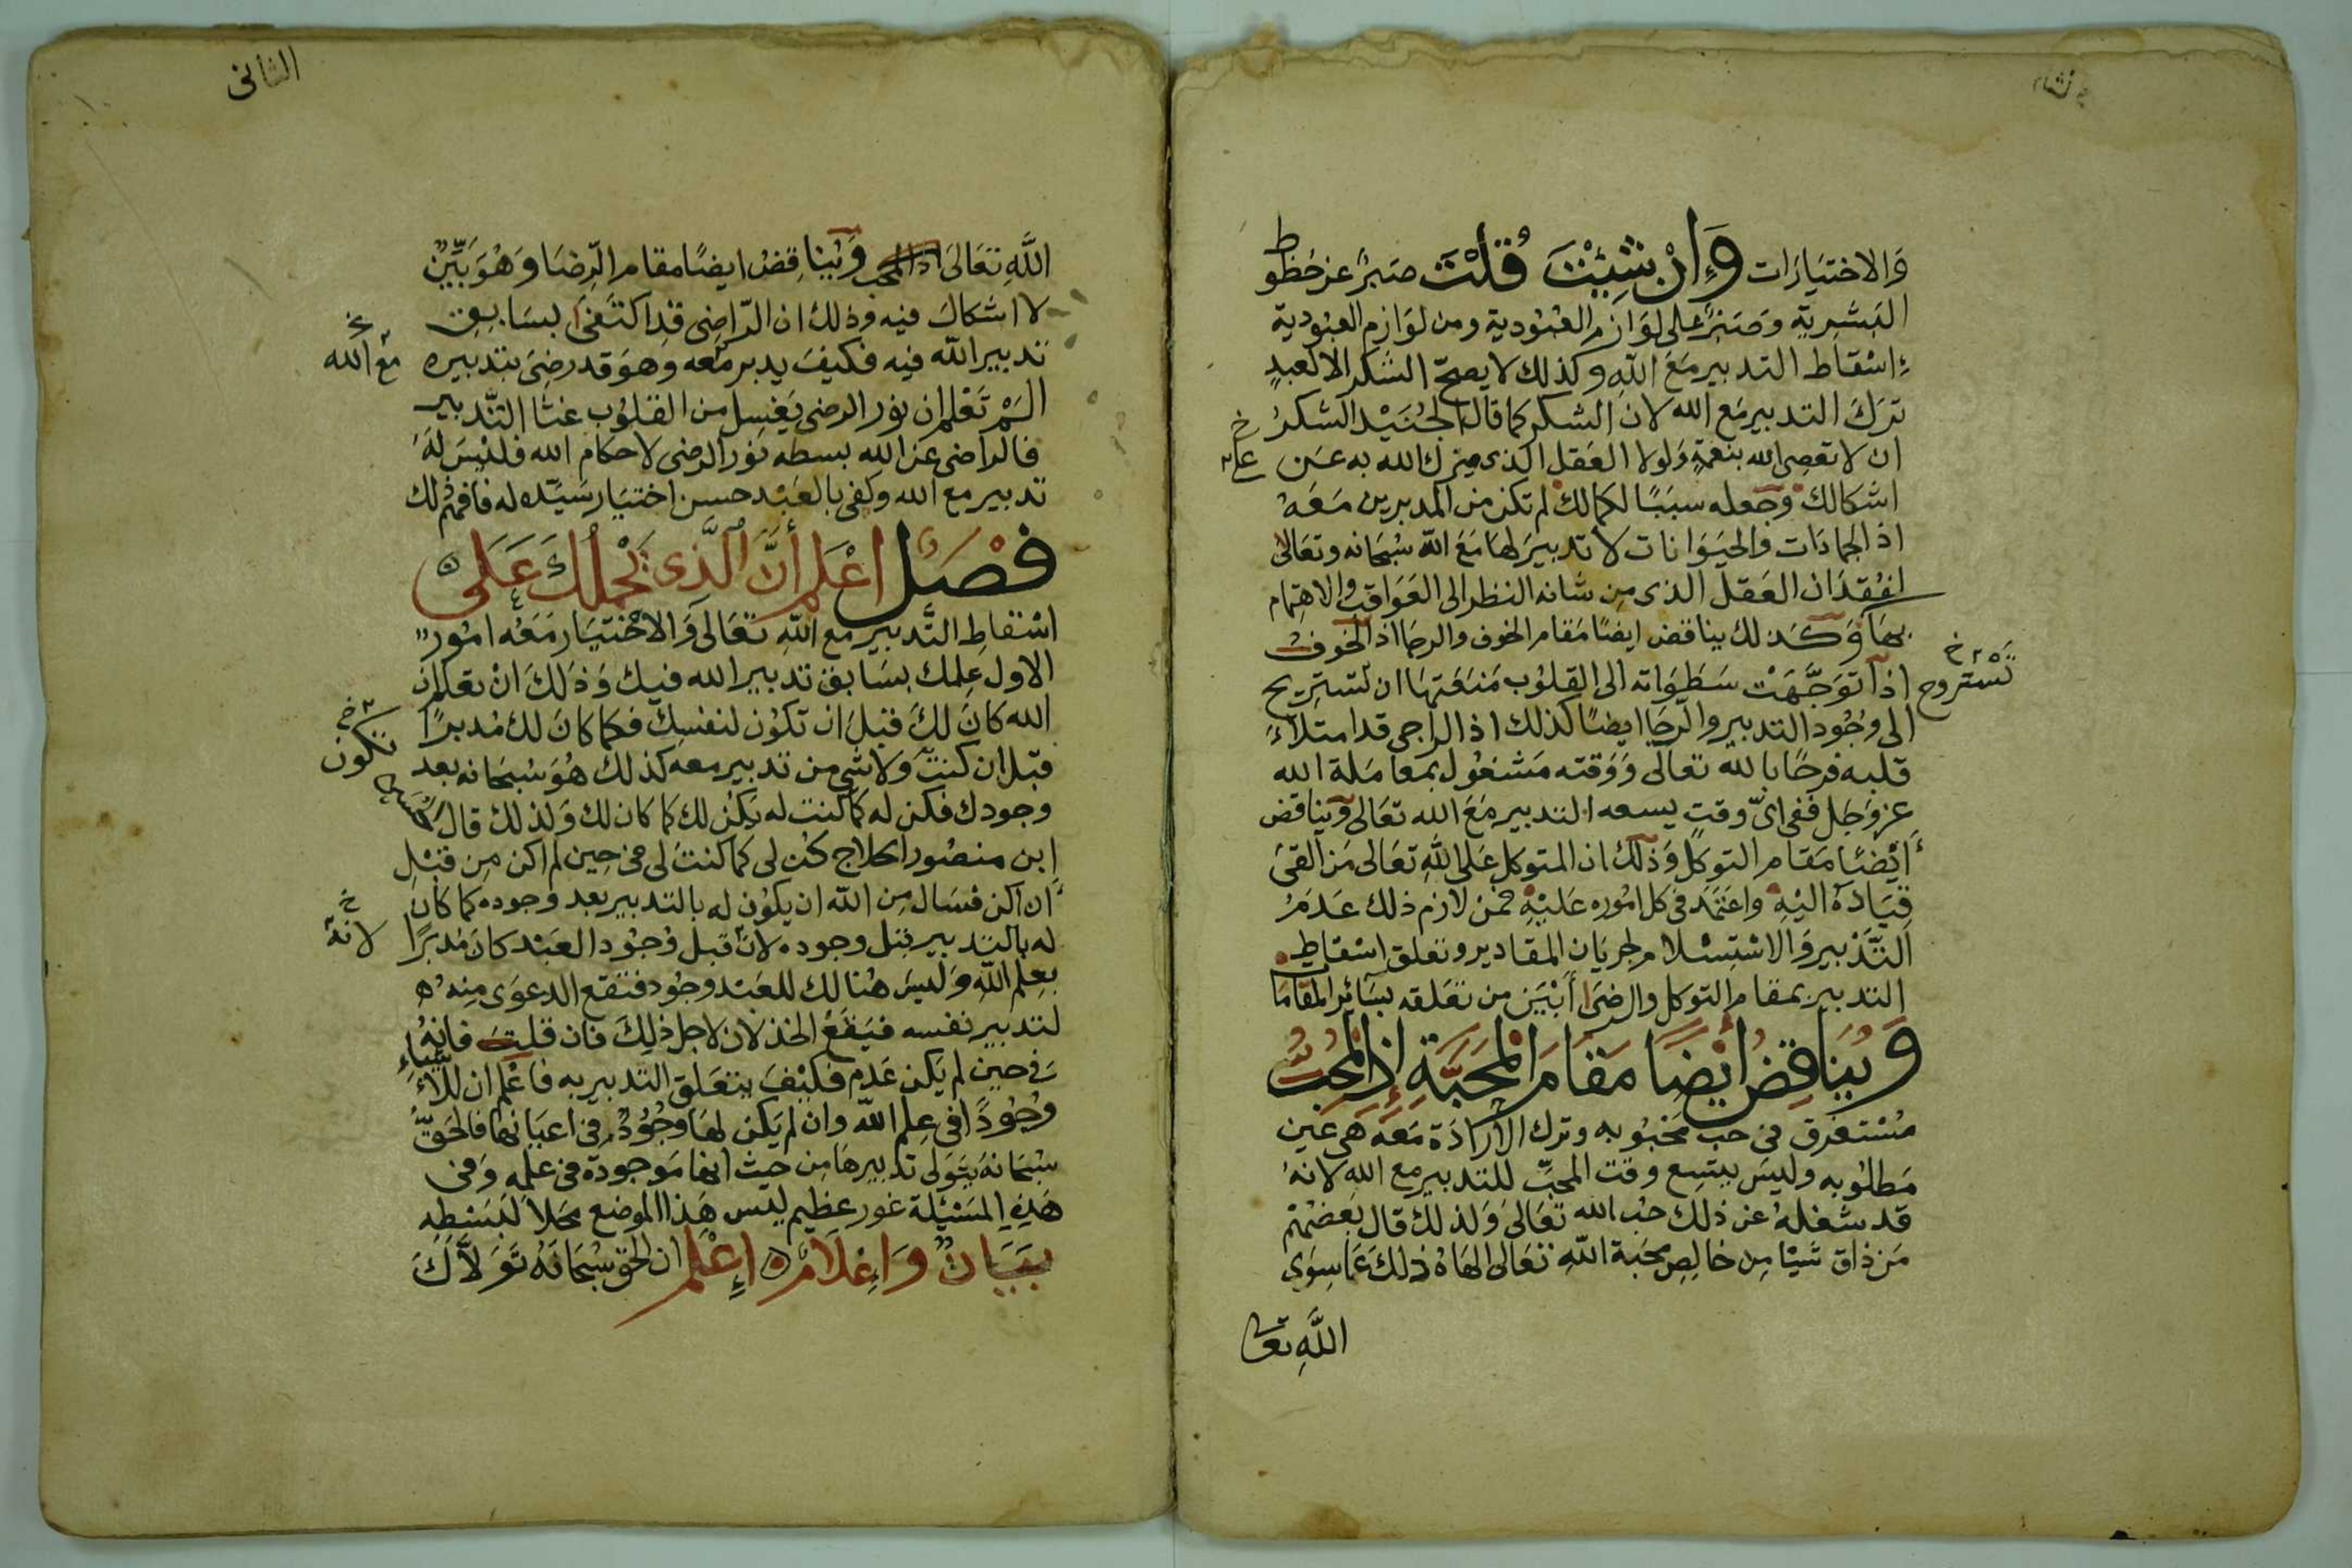 والاختيارات وَإِنْ شِئْتَ قُلْتَ صبرٌ عن حظوظ
البشرية وصبرٌ على لوازم العبودية ومن لوازم العبودية
إسقاط التدبير مع الله وكذلك لا يصحّ الشكر الا لعبدٍ
ترك التدبير مع الله لان الشكر كما قال الجنيد الشكر
ان لا تعصى الله بنعمةٍ ولولا العقل الذى ميزك الله به عن
على خ
اشكالك وجعله سببًا لكمالك لم تكن من المدبرين معه
اذ الجمادات والحيوانات لا تدبير لها مع الله سبحانه وتعالى
لفقدان العقل الذى من شانه النظر الى العواقب والاهتمام
بها وكذلك يناقض ايضًا مقام الخوف والرجا اذ الخوف
اذا توجهت سطواته الى القلوب منعتها ان تستريح
تستروح خ
الى وجود التدبير والرجا ايضًا كذلك اذ الراجى قد امتلاء
قلبه فرحًا بالله تعالى ووقته مشغول بمعاملة الله
عز وجل ففى اىّ وقتٍ يسعه التدبير مع الله تعالى ويناقض
أيضًا مقام التوكل وذلك ان المتوكل على الله تعالى من القى
قياده اليه واعتمد فى كل اموره عليه فمن لازم ذلك عدم
التدبير والاستسلام لجريان المقادير وتعلق اسقاط
التدبير بمقام التوكل والرضى أبين من تعلقه بسائر المقاما
وَيُنَاقِضُ أَيْضًا مَقَامَ الْمَحَبَّةِ إِذِ الْمُحِبُّ
مستغرق فى حب محبوبه وترك الارادة معه هى عين
مطلوبه وليس يتسع وقت المحبّ للتدبير مع الله لانه
قد شغله عن ذلك حب الله تعالى ولذلك قال بعضهم
من ذاق شيًا من خالص محبة الله تعالى الهاه ذلك عما سوى
الله تعا
الثانى
الله تعالى اذ المحب ويناقض ايضًا مقام الرضا وهو بيّن
لا اشكال فيه وذلك ان الراضى قد اكتفى بسابق
تدبير الله فيه فكيف يدبر معه وهو قد رضى بتدبيره
مع الله خ
الم تعلم ان نور الرضى يغسل من القلوب غثا التدبير
فالراضى عن الله بسطه نور الرضى لاحكام الله فليس له
تدبير مع الله وكفى بالعبد حسن اختيار سيّده له فافهم ذلك
فَصْلٌ اعْلَم أَنَّ الَّذِى يَحْمِلُكَ عَلَى
اسقاط التدبير مع الله تعالى والاختيار معه امورٌ
الاول علمك بسابق تدبير الله فيك وذلك ان تعلم ان
الله كان لك قبل ان تكون لنفسك فكما كان لك مدبرًا
تكون خ
قبل ان كنت ولا شى من تدبير معه كذلك هو سبحانه بعد
وجودك فكن له كما كنت له يكن لك كما كان لك ولذلك قال الحسين
ابن منصور الحلاج كن لى كما كنت لى فى حين لم اكن من قبل
ان اكن فسال من الله ان يكون له بالتدبير بعد وجوده كما كان
له بالتدبير قبل وجوده لان قبل وجود العبد كان مدبرًا
لانه خ
بعلم الله وليس هنالك للعبد وجود فتقع الدعوى منه
لتدبير نفسه فيقع الخذلان لاجل ذلك فان قلت فانه
فى حين لم يكن عدم فكيف يتعلق التدبير به فاعلم ان للاشياء
وجودًا فى علم الله وان لم يكن لها وجودٌ فى اعيانها فالحقّ
سبحانه يتولى تدبيرها من حيث انها موجودة فى علمه وفى
هذه المسئلة غور عظيم ليس هذا الموضع محلاً لبسطه
بَيَانٌ وَإِعْلَامٌ اِعْلَم ان الحق سبحانه تولاك